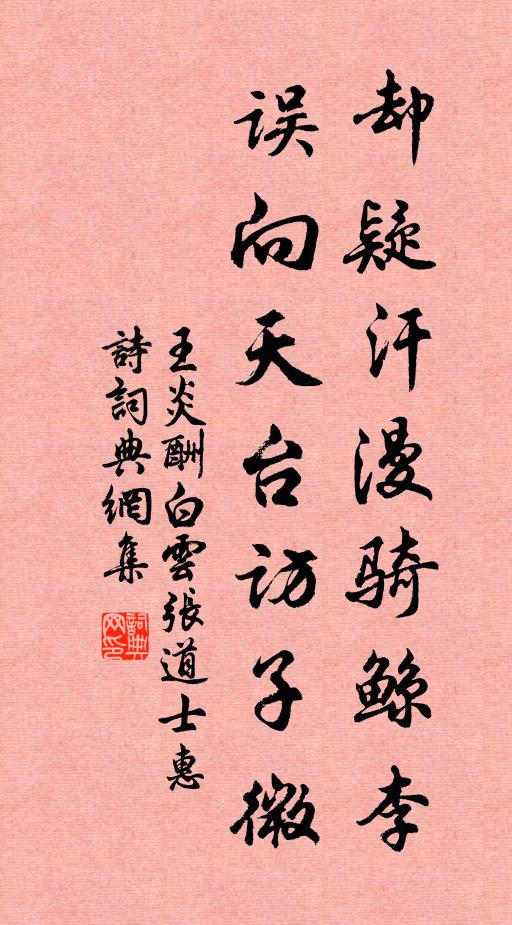 却疑汗漫骑鲸李
误向天台访子微
王炎酬白雲張道士惠
詩詞典網集
詞典网印